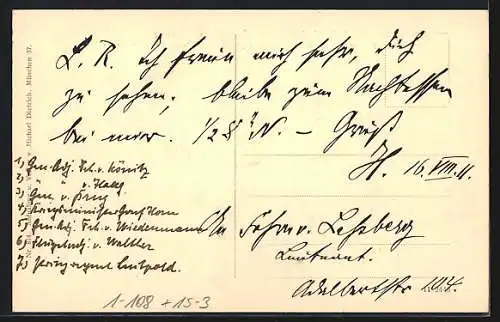 L. R. Ich freue mich sehr, Dich
zu sehen; bleibe zum Nachtessen
bei mir. 1/2 8 N. – Gruß
H. 16. VIII. 11.
1) Gen. Adj. Frh. v. Könitz
2) " " v. Haag
3) Gen. v.
4) Kriegsminister Graf Horn
5) Gen. Adj. Frh. v. Wiedenmann
6) Flügeladj. v. Walther
7) Prinzregent Luitpold.
Frhrn v. Lehsberg
Lieutenant.
Adalbertstr 104.
1-108 + 15-3
Michael Dietrich, München 37.